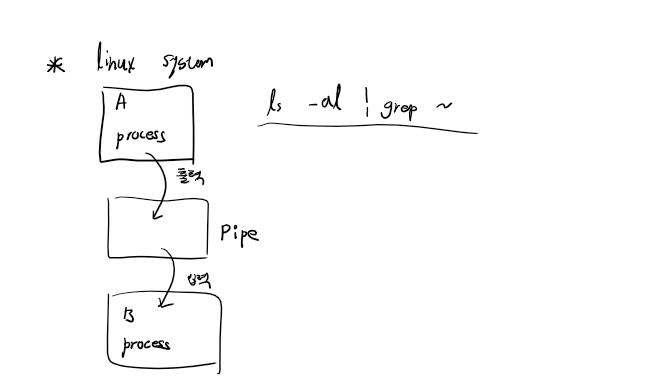 * linux system
A
process
출력
Pipe
입력
B
process
ls -al | grep ~